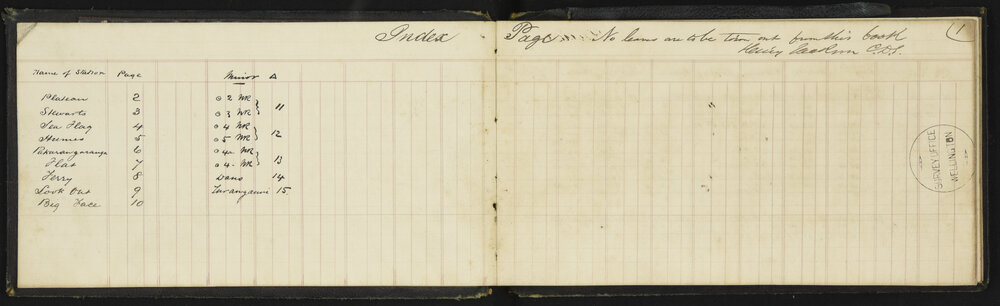 Index
Name of Station Page Minor Δ
Plateau 2 o 2 WR
Stewarts 3 o 3 WR } 11
Sea Flag 4 o 4 WR
Humes 5 o 5 WR } 12
6 o 4a WR
Flat 7 o 4. WR } 13
Ferry 8 14
Look Out 9 15.
Big Face 10
Page No leaves are to be torn out from this book
Henry Jackson C.D.S.
1
"
SURVEY OFFICE
WELLINGTON